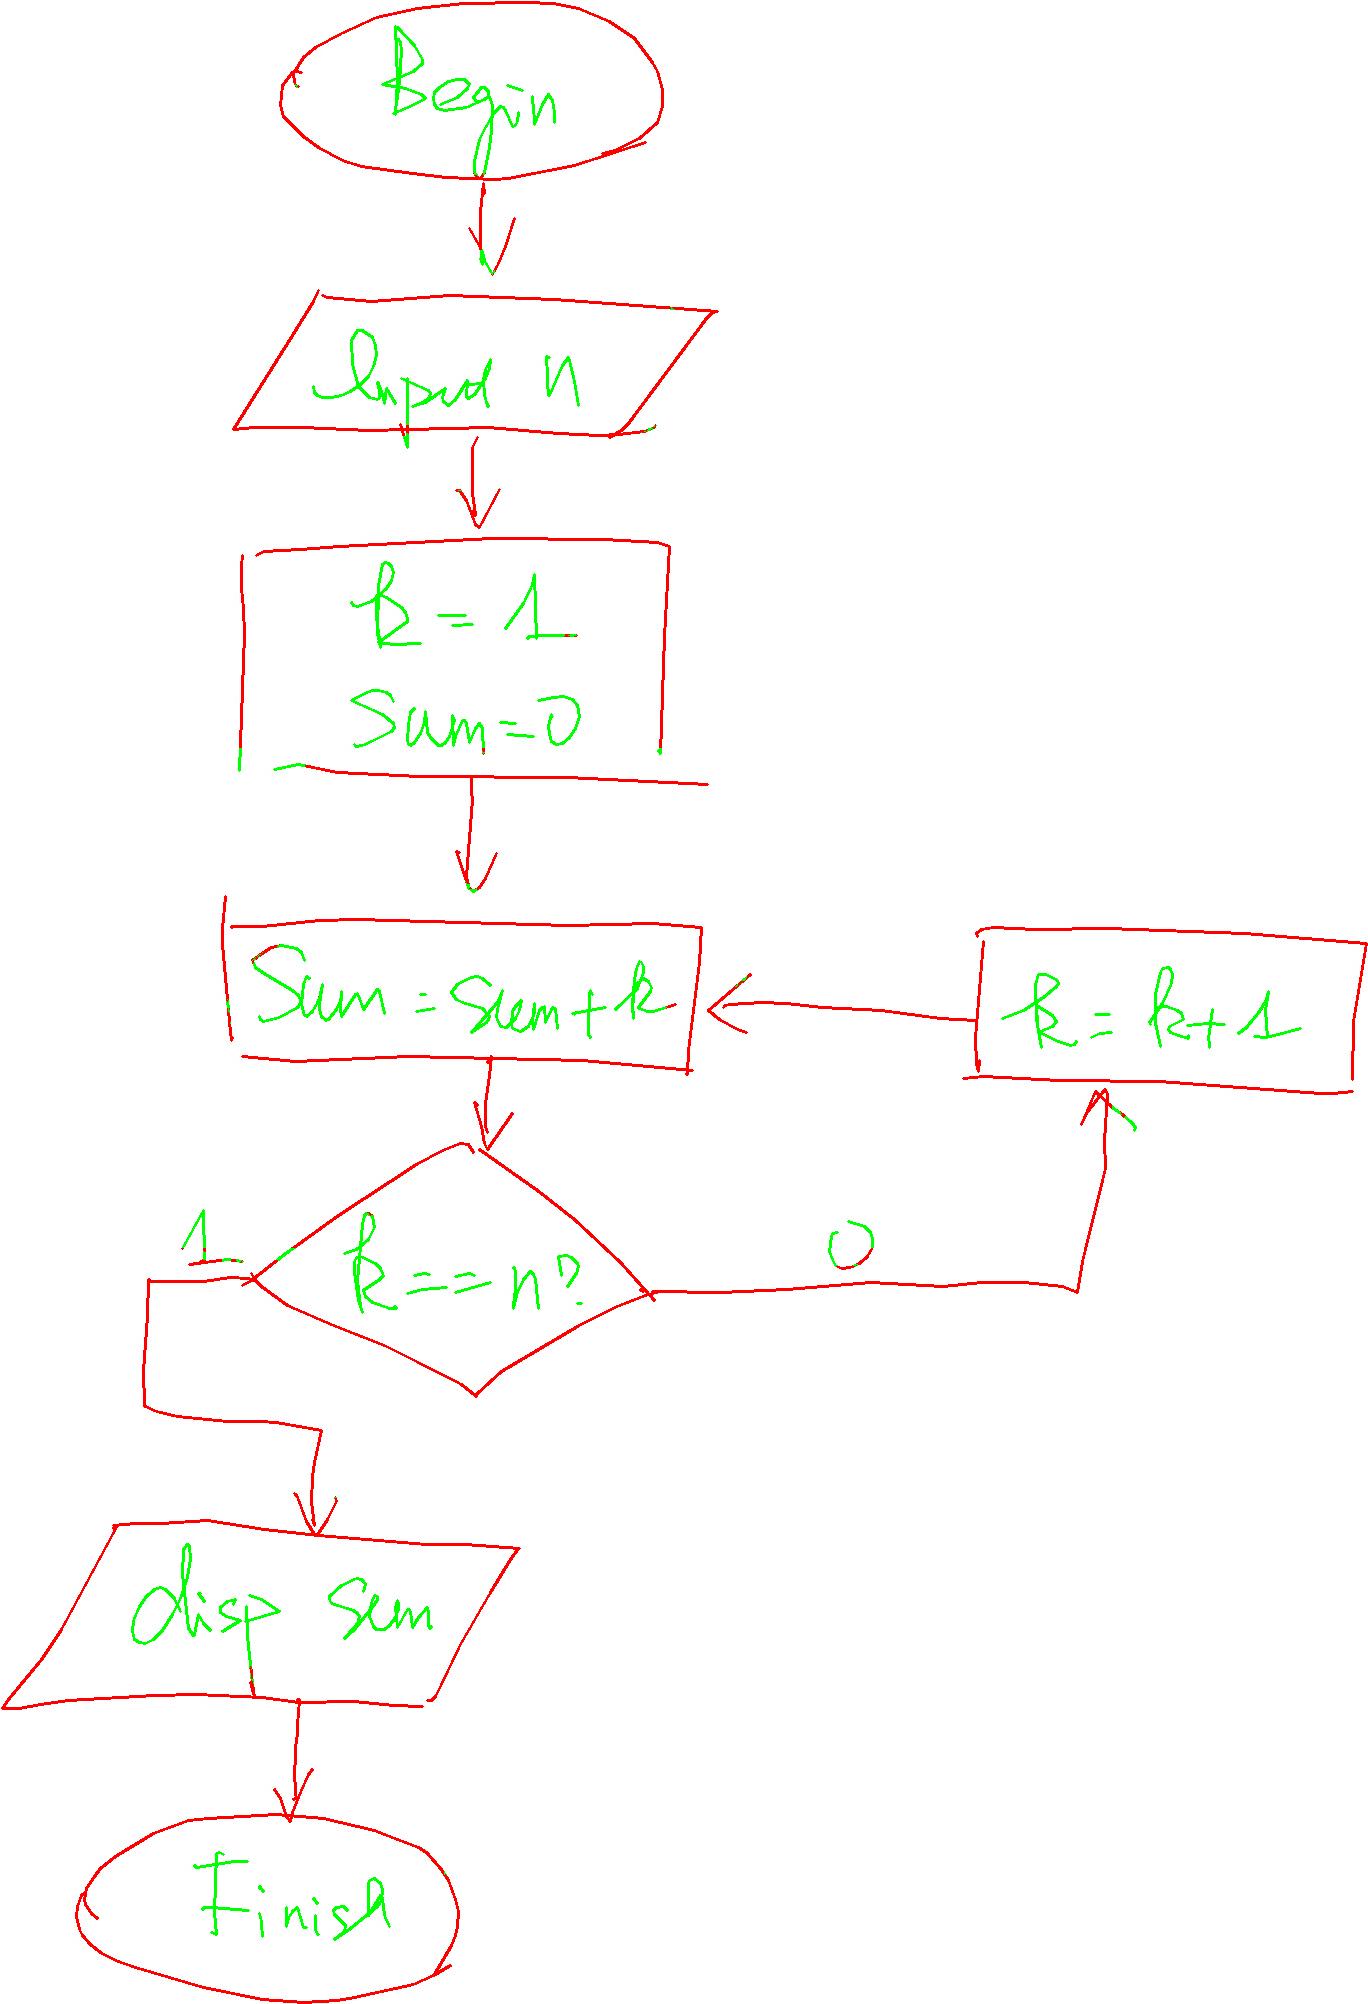 Begin
Input n
k = 1
Sum = 0
Sum = sum + k
k = k + 1
1
k == n?
0
disp sum
Finish